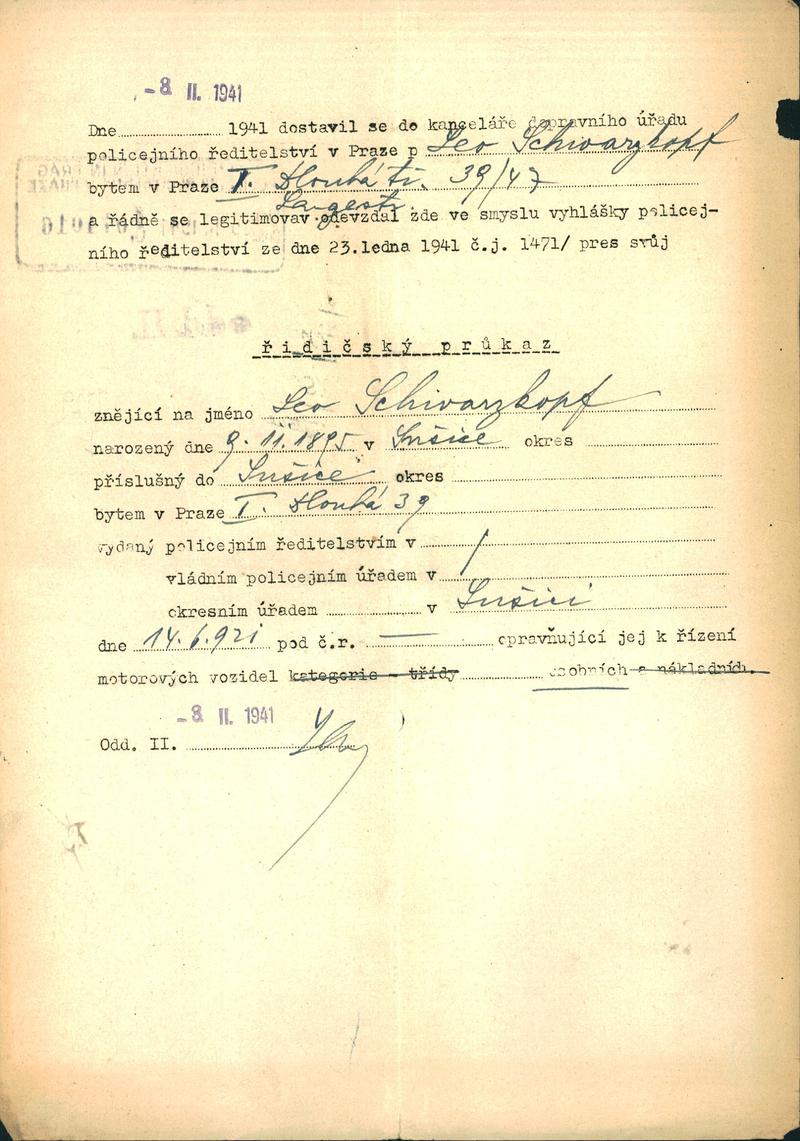 -8 II. 1941
Dne .................... 1941 dostavil se do kanceláře dopravního úřadu
policejního ředitelství v Praze p Leo Schwarzkopf
bytem v Praze I. Dlouhá tř. 39/47
Langestr.
a řádně se legitimovav odevzdal zde ve smyslu vyhlášky policej-
ního ředitelství ze dne 23.ledna 1941 č.j. 1471/ pres svůj
řidičský průkaz
znějící na jméno Leo Schwarzkopf
narozený dne 9. II. 1895 v Sušice okres
příslušný do Sušice okres
bytem v Praze I. Dlouhá 39
vydaný policejním ředitelstvím v /
vládním policejním úřadem v
okresním úřadem .................... v Sušici
dne 14.6.921 pod č.r. — opravňující jej k řízení
motorových vozidel kategorie - třídy .................... osobních a nákladních.
-8 II. 1941
Odd. II.